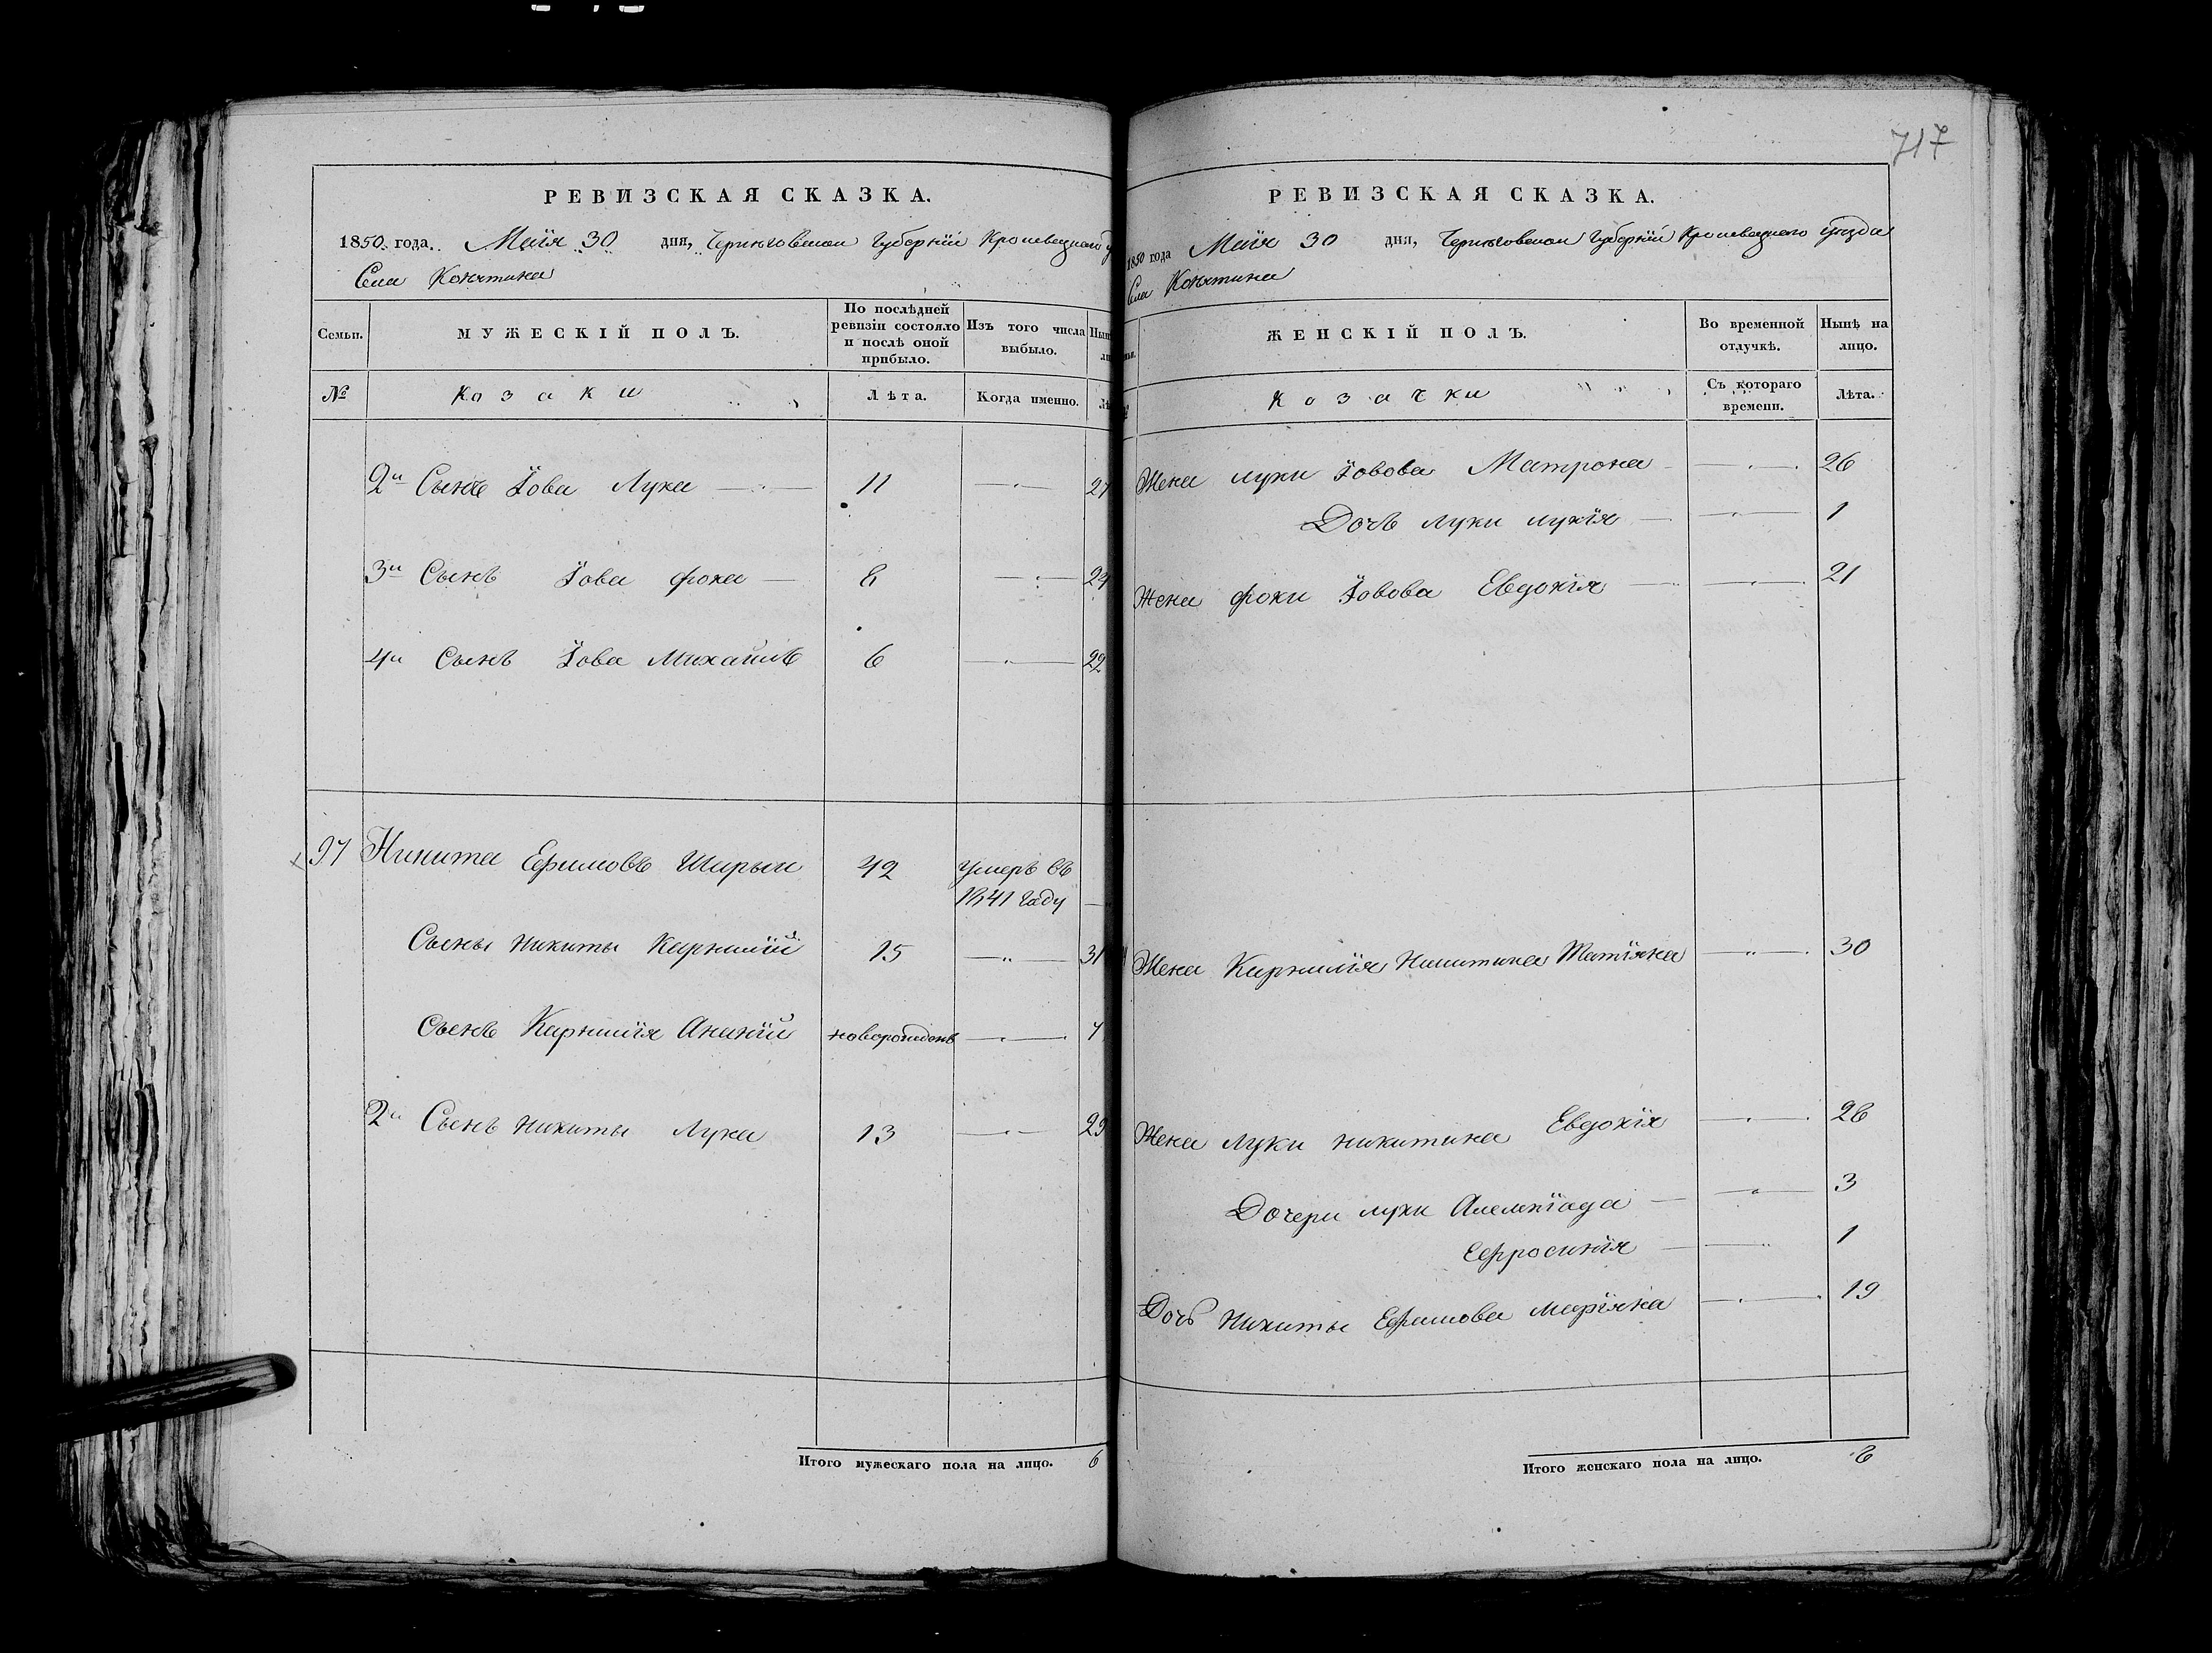 717
РЕВИЗСКАЯ СКАЗКА.
1850 года Маія 30 дня, Черниговской Губерніи Кролевецкаго у
Села Конятина
Семьи. МУЖЕСКІЙ ПОЛЪ. По послѣдней ревизіи состояло и послѣ оной прибыло. Изъ того числа выбыло. Нын
№ Козаки Лѣта. Когда именно. Лѣ
2й Сынъ Іова Лука 11 27
3й Сынъ Іова Фока 8 24
4й Сынъ Іова Михаилъ 6 22
97 Никита Ефимовъ Шарый 42 умеръ въ
1841 году
Сыны Никиты Карнилій 15 31
Сынъ Карнилія Ананій новорожденъ 7
2й Сынъ Никиты Лука 13 29
Итого мужескаго пола на лицо. 6
РЕВИЗСКАЯ СКАЗКА.
1850 года Маія 30 дня, Черниговской Губерніи Кролевецкаго уезда
Села Конятина
ЖЕНСКІЙ ПОЛЪ. Во временной отлучкѣ. Нынѣ на лицо.
Козачки Съ котораго времени. Лѣта.
Жена Луки Іовова Матрона 26
Дочь Луки Лукія 1
Жена Фоки Іовова Евдокія 21
Жена Карнилія Никитина Татіяна 30
Жена Луки Никитина Евдокія 26
Дочери Луки 3
Ефросинія 1
Дочь Никиты Ефимова Маріяна 19
Итого женскаго пола на лицо. 8